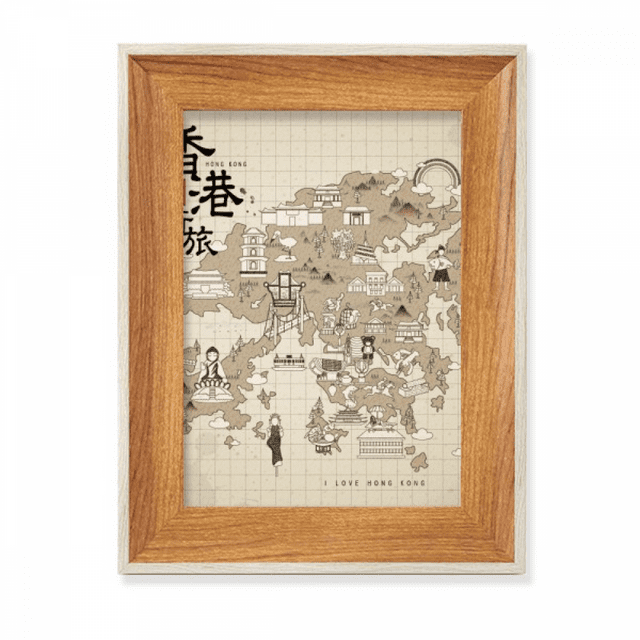 香港
HONG KONG
之旅
I LOVE HONG KONG